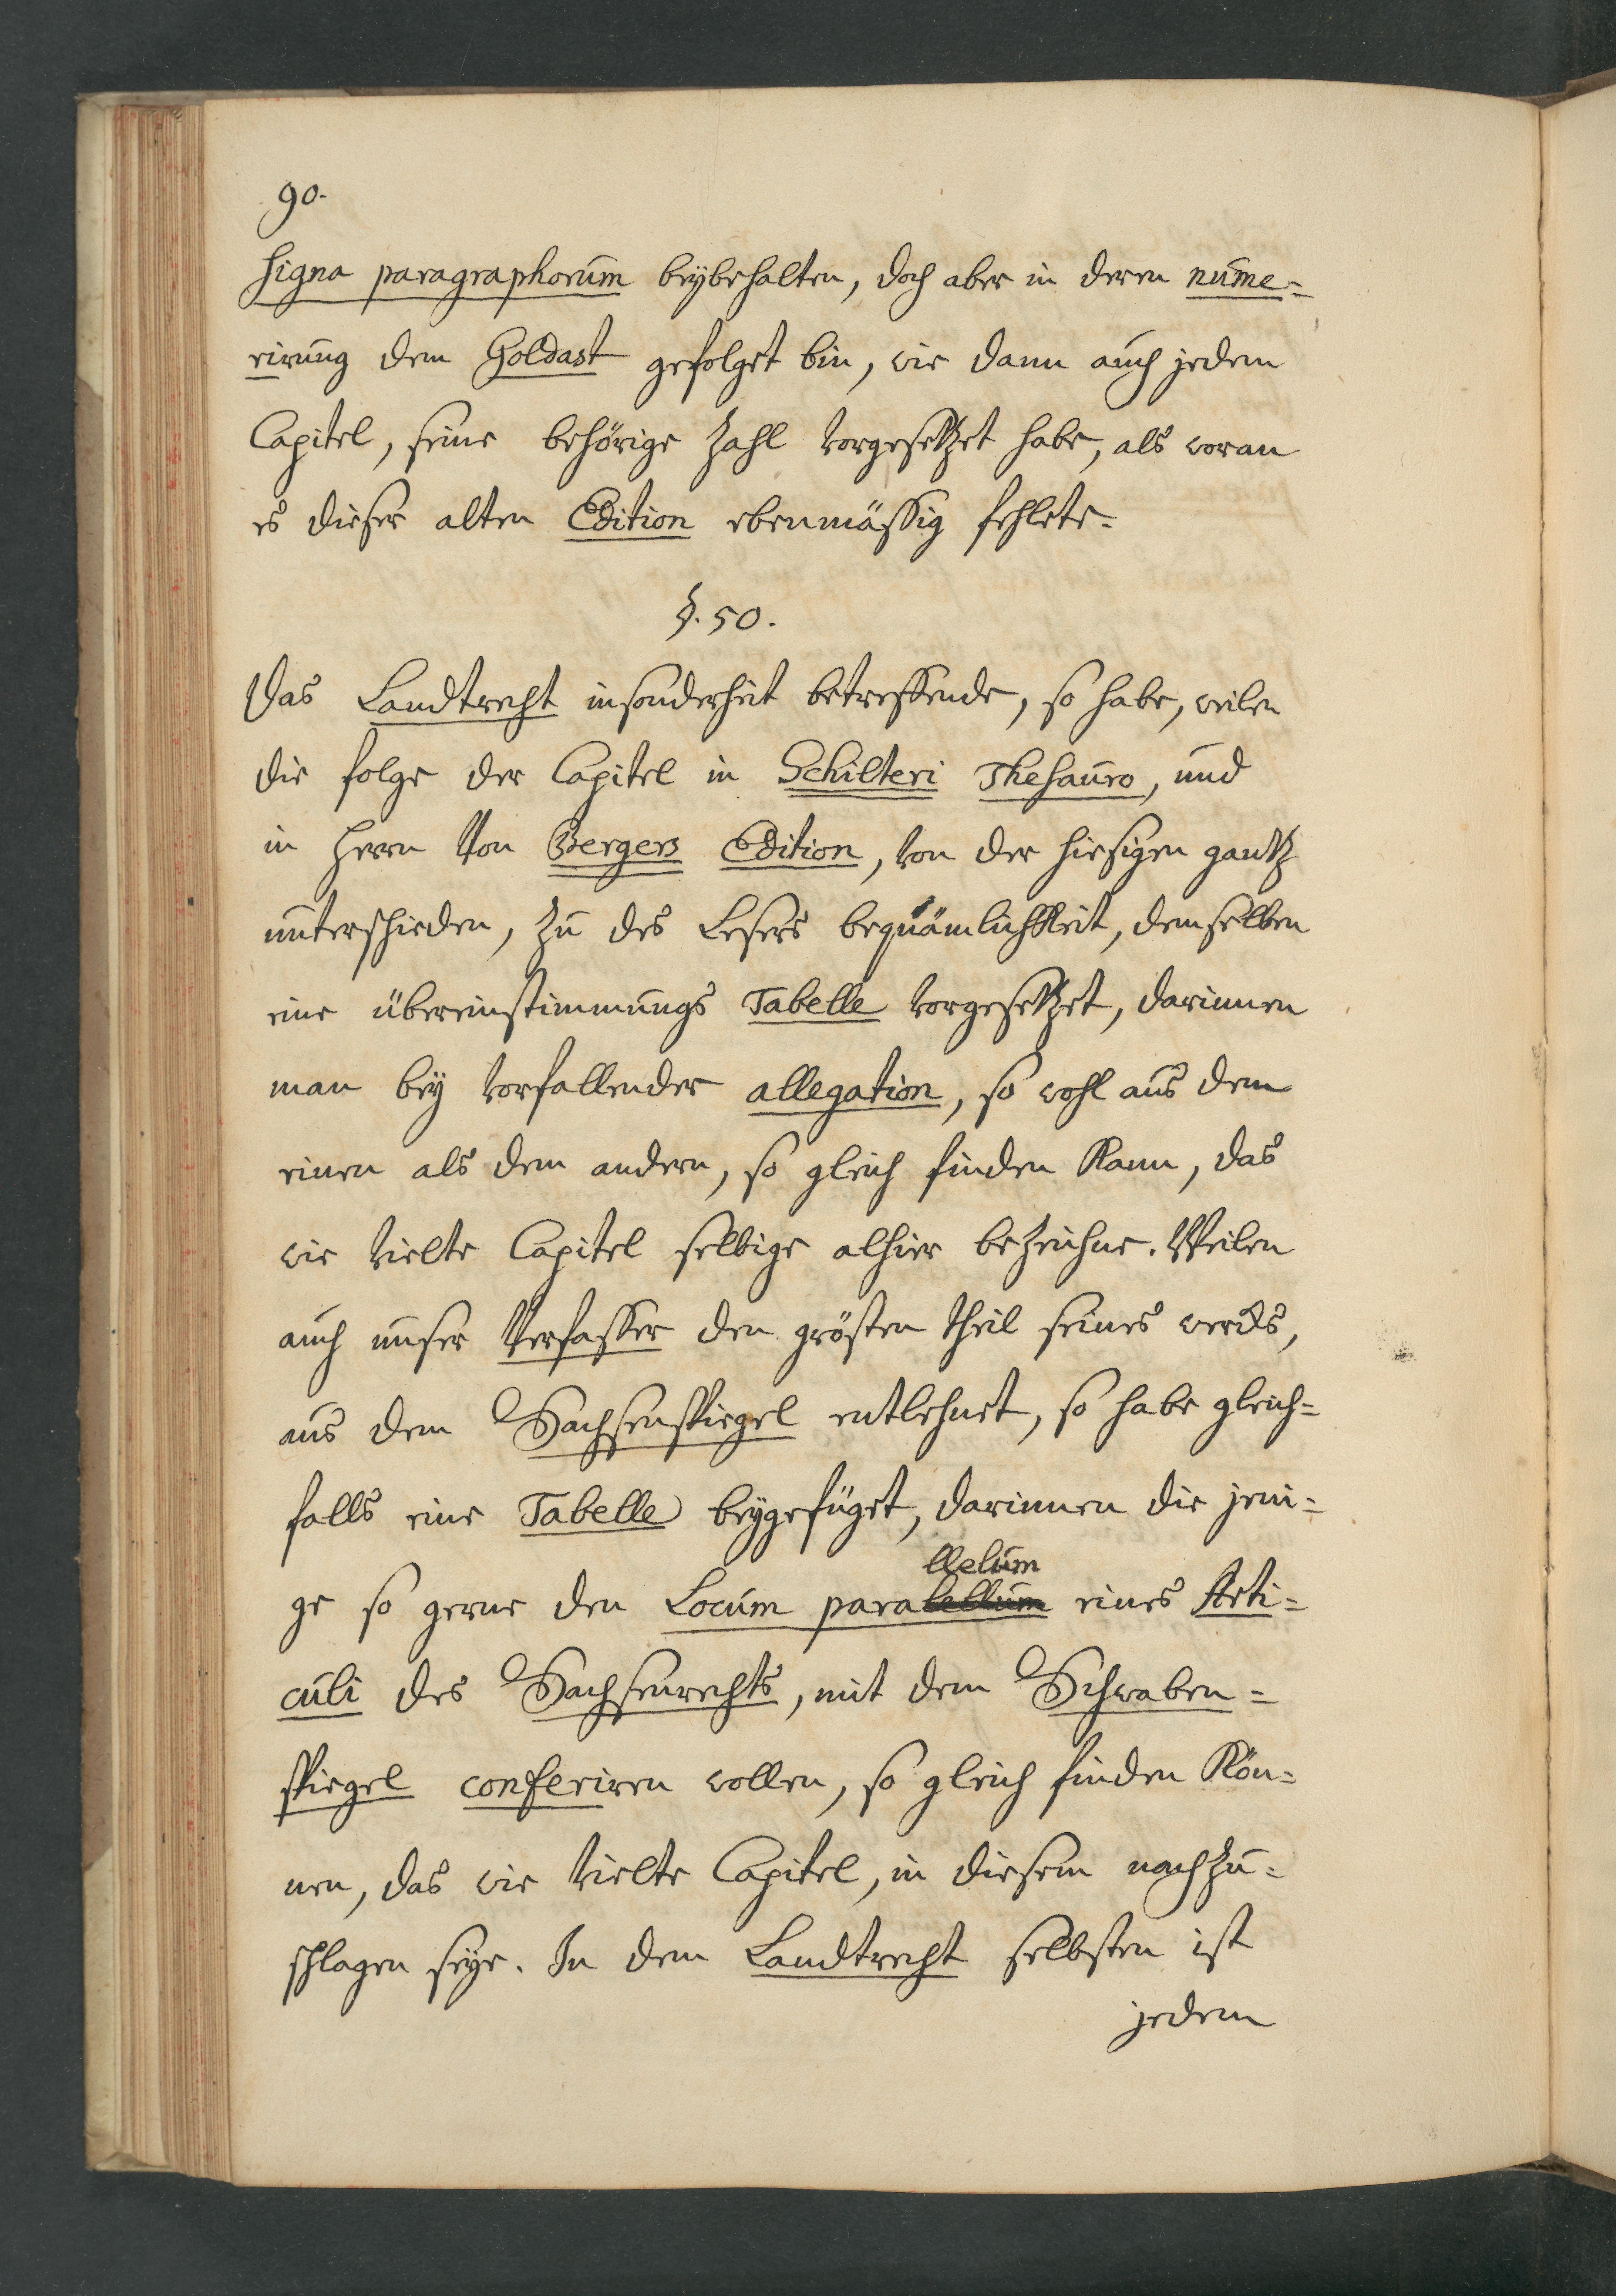 90.
signa paragraphorum beÿbehalten, doch aber in deren nume=
rirung dem Goldast gefolget bin, wie dann auch jedem
Capitel, seine behörige Zahl vorgesetzet habe, als woran
es dieser alten Edition ebenmässig fehlete.
§. 50.
Das Landtrecht insonderheit betreffende, so habe, weilen
die folge der Capitel in Schilteri Thesauro, und
in Herrn Von Bergers Edition, von der hiesigen gantz
unterschieden, Zu des Lesers bequämlichkeit, demselben
eine übereinstimmungs Tabelle vorgesetzet, darinnen
man beÿ vorfallender allegation, so wohl aus dem
einen als dem andern, so gleich finden Kann, das
wie vielte Capitel selbige alhier beZeichne. Weilen
auch unser Verfasser den grösten theil seines wercks,
aus dem Sachsenspiegel entlehnet, so habe gleich=
falls eine Tabelle beÿgefüget, darinnen die jeni=
llelum
ge so gerne den Locum parabellum eines Arti=
culi des Sachsenrechts, mit dem Schwaben=
spiegel conferiren wollen, so gleich finden Kön=
nen, das wie vielte Capitel, in diesem nachZu=
schlagen seÿe. In dem Landtrecht selbsten ist
jedem